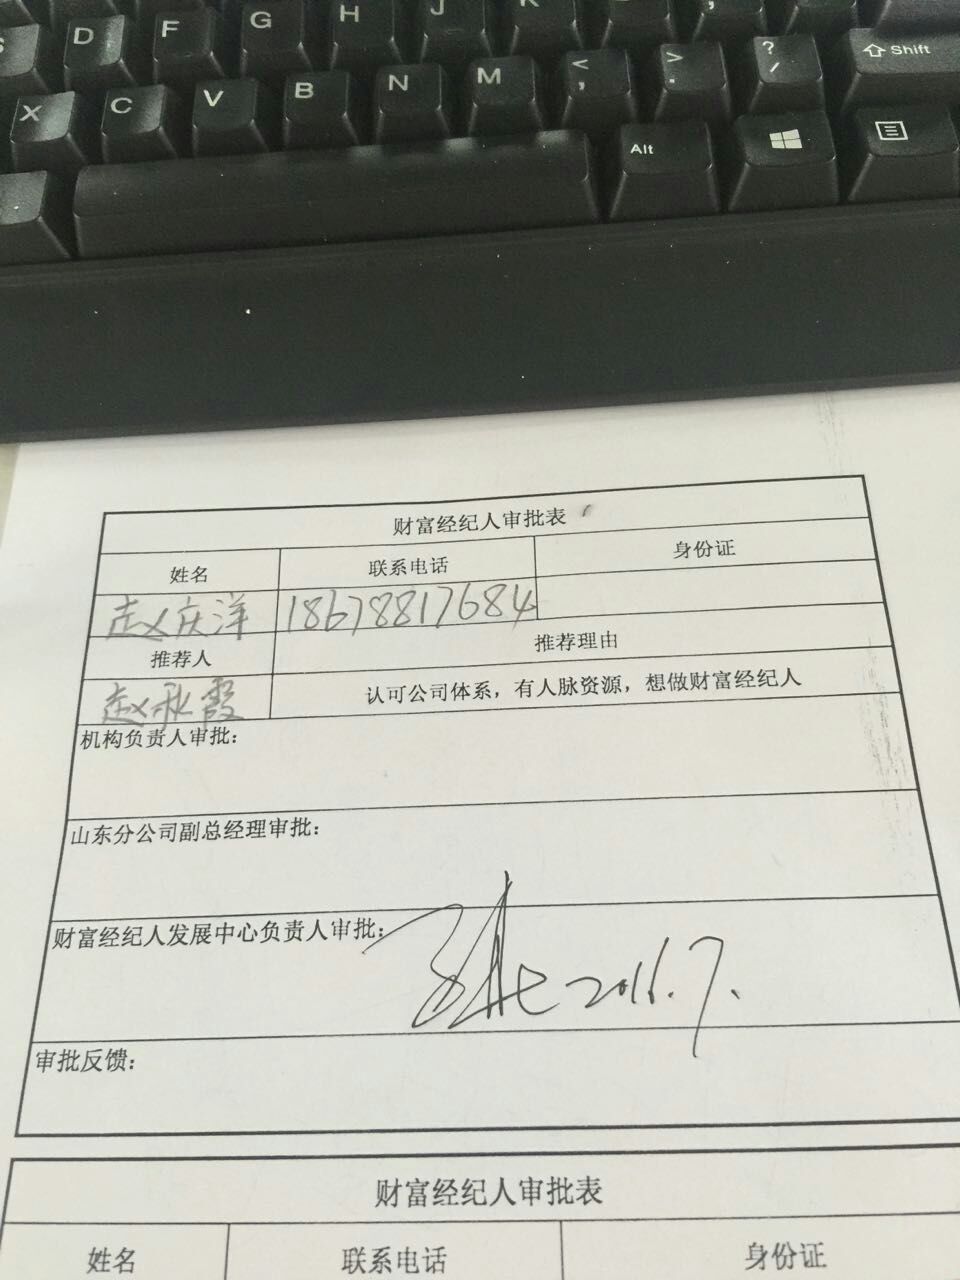 S D F G H J K
X C V B N M < , > . ? / Shift
Alt
财富经纪人审批表
姓名 联系电话 身份证
赵庆洋 18678817684
推荐人 推荐理由
赵秋霞 认可公司体系，有人脉资源，想做财富经纪人
机构负责人审批：
山东分公司副总经理审批：
财富经纪人发展中心负责人审批：
2016.7.
审批反馈：
财富经纪人审批表
姓名 联系电话 身份证